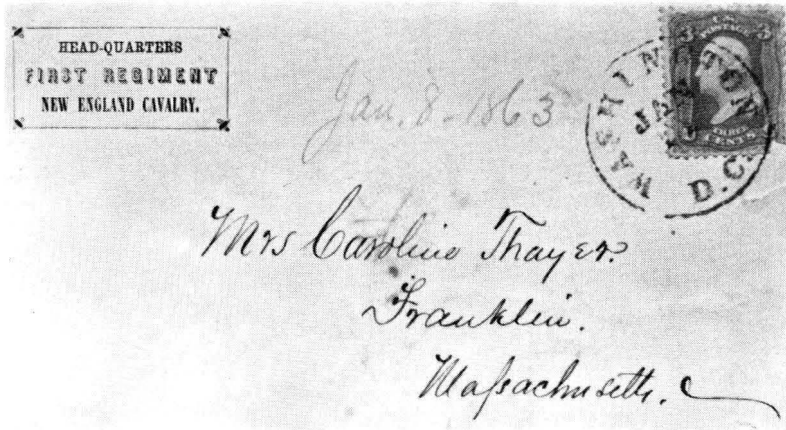 HEAD-QUARTERS
FIRST REGIMENT
NEW ENGLAND CAVALRY.
Jan. 8. 1863
WASHINGTON
JAN
D.C.
3 3
THREE
CENTS
Mrs Caroline Thayer.
Franklin.
Maſsachusetts.